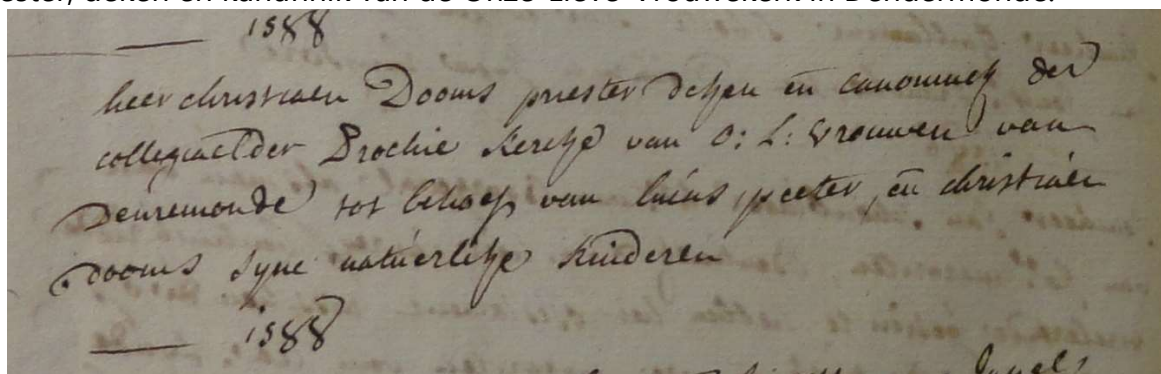 ester, deken en kanunnik van de Onze-Lieve-Vrouwekerk in Dendermonde.
1588
heer christiaen Dooms priester deken en canoninck der
collegiaelder Prochie Kercke van O: L: Vrouwen van
Denremonde tot behoef van peeter, en christiaen
dooms syne natuerlijke kinderen
1588